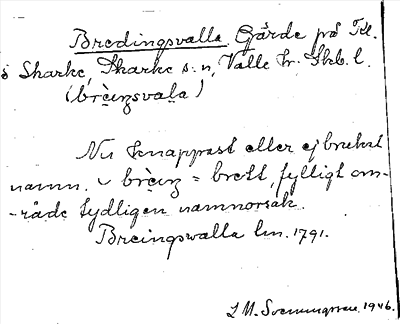 Bredingsvalla Gärde på Kl.
s Skarke, Skarke s:n, Valle hr. Skb. l.
(brèi̯ŋsvala)
Nu knappast eller ej brukat
namn. brèi̯ŋ = brett, fylligt om-
-råde tydligen namnorsak.
Breingswalla lm. 1791.
1946.